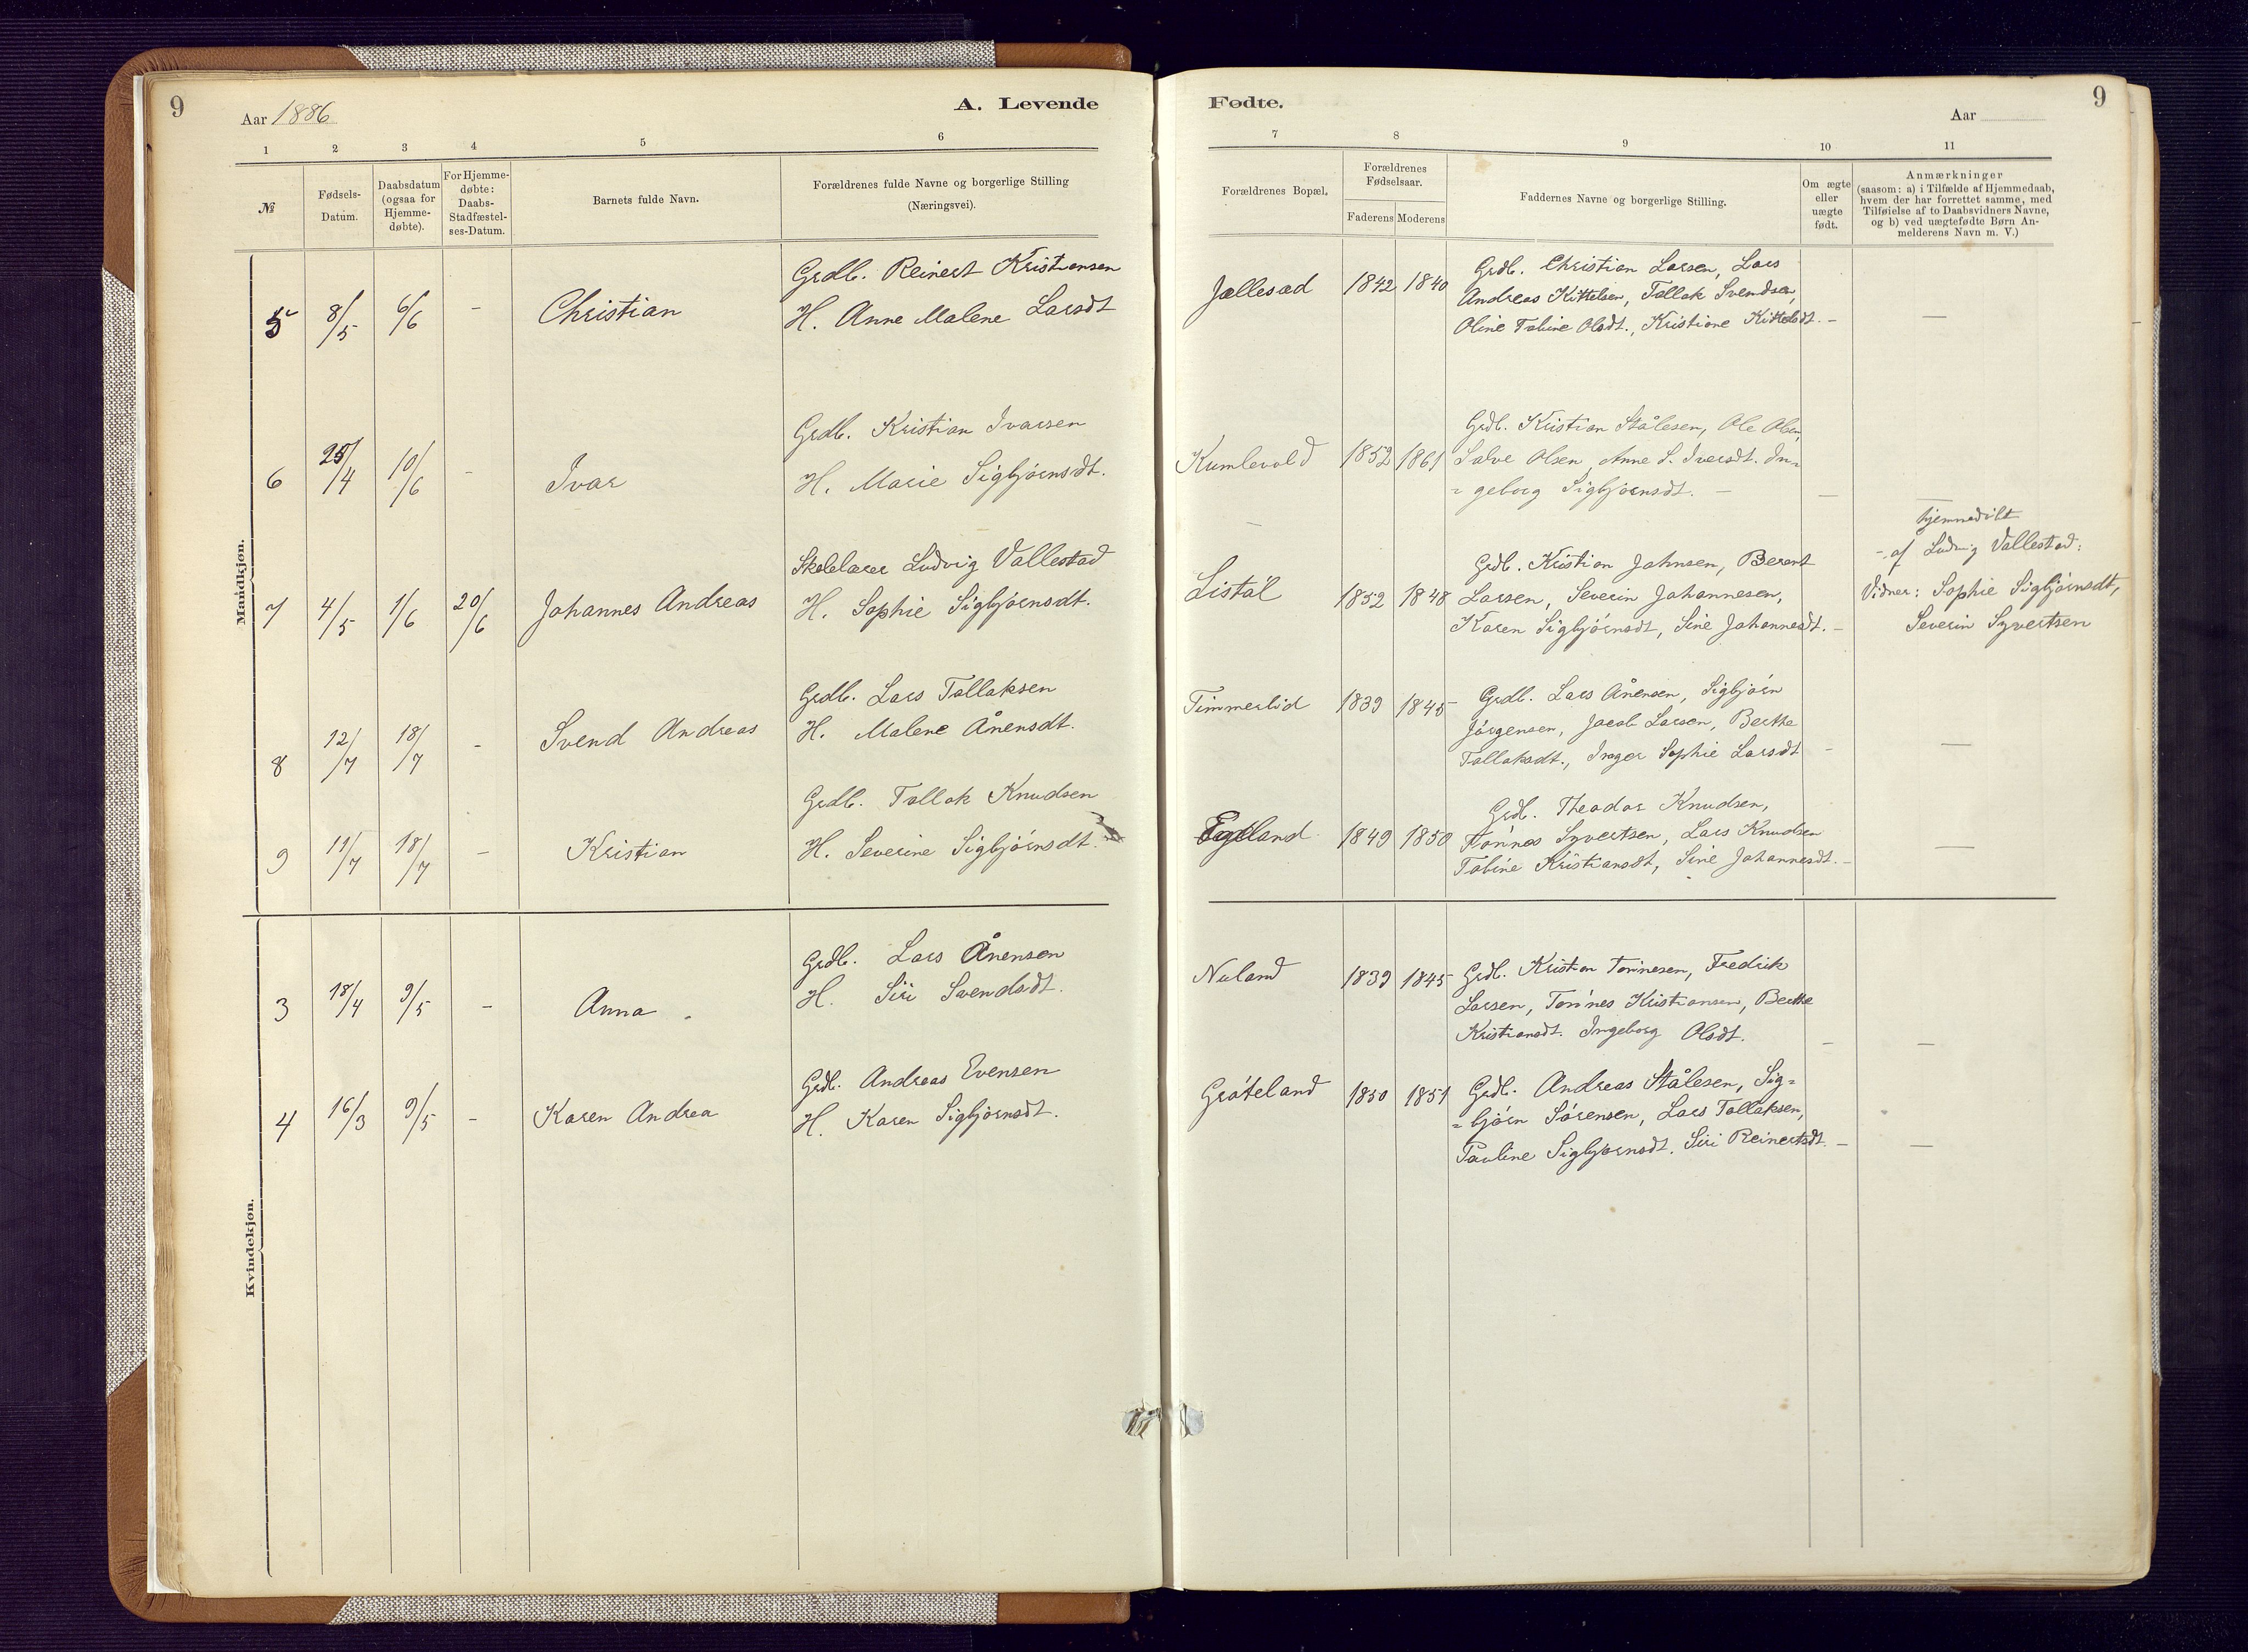 9
Aar 1886
A. Levende
1 2 3 4 5 6
№
Fødsels-
Datum.
Daabsdatum
(ogsaa for
Hjemme-
døbte).
For Hjemme-
døbte:
Daabs-
Stadfæstel-
ses-Datum.
Barnets fulde Navn.
Forældrenes fulde Navne og borgerlige Stilling
(Næringsvei).
Mandkjøn.
Grdb. Reinert Kristiansen
5 8/5 6/6 - Christian H. Anne Malene Larsdt
Grdb. Kristian Ivarsen
6 25/4 10/6 - Ivar H. Marie Sigbjørnsdt.
Skolelærer Ludvig Vallestad
7 4/5 1/6 20/6 Johannes Andreas H. Sophie Sigbjørnsdt.
Grdb. Lars Tallaksen
8 12/7 18/7 - Svend Andreas H. Malene Ånensdt.
Grdb. Tallak Knudsen
9 11/7 18/7 - Kristian H. Severine Sigbjørnsdt.
Kvindekjøn.
Grdb. Lars Ånensen
3 18/4 9/5 - Anna H. Siri Svendsdt.
Grdb. Andreas Evensen
4 16/3 9/5 - Karen Andrea H. Karen Sigbjørnsdt.
Fødte.
9
Aar
7 8 9 10 11
Forældrenes Bopæl.
Forældrenes
Fødselsaar.
Faderens Moderens
Faddernes Navne og borgerlige Stilling.
Om ægte
eller
uægte
født.
Anmærkninger
(saasom: a) i Tilfælde af Hjemmedaab,
hvem der har forrettet samme, med
Tilføielse af to Daabsvidners Navne,
og b) ved uægtefødte Børn An-
melderens Navn m. V.)
Jallesad 1842 1840 Grdb. Christian Larsen, Lars
Andreas Kittelsen, Tallak Svendsen,
Oline Tobine Olsdt., Kristiane Kittelsdt. - —
Kumlevold 1852 1861 Grdb. Kristian Stålesen, Ole Olsen,
Salve Olsen, Anne S. Iversdt. In=
= geborg Sigbjørnsdt. - — —
Listøl 1852 1848 Grdb. Kristian Johnsen, Berent
Larsen, Severin Johannesen,
Karen Sigbjørnsdt, Sine Johannesdt. -
hjemmedøbt
- af Ludvig Vallestad:
Vidner: Sophie Sigbjørnsdt,
Severin Syvertsen
Timmerlid 1839 1845 Grdb. Lars Ånensen, Sigbjørn
Jørgensen, Jacob Larsen, Berthe
Tallaksdt., Inger Sophie Larsdt - —
Egeland 1849 1850 Grdb. Theodor Knudsen,
Tønnes Syvertsen, Lars Knudsen
Tobine Kristiansdt, Sine Johannesdt. - —
Nuland 1839 1845 Grdb. Kristian Tønnesen, Fredrik
Larsen, Tønnes Kristiansen, Berthe
Kristiansdt. Ingeborg Olsdt. - —
Grøteland 1850 1851 Grdb. Andreas Stålesen, Sig=
= bjørn Sørensen, Lars Tallaksen,
Pauline Sigbjørnsdt. Siri Reinertsdt. - —